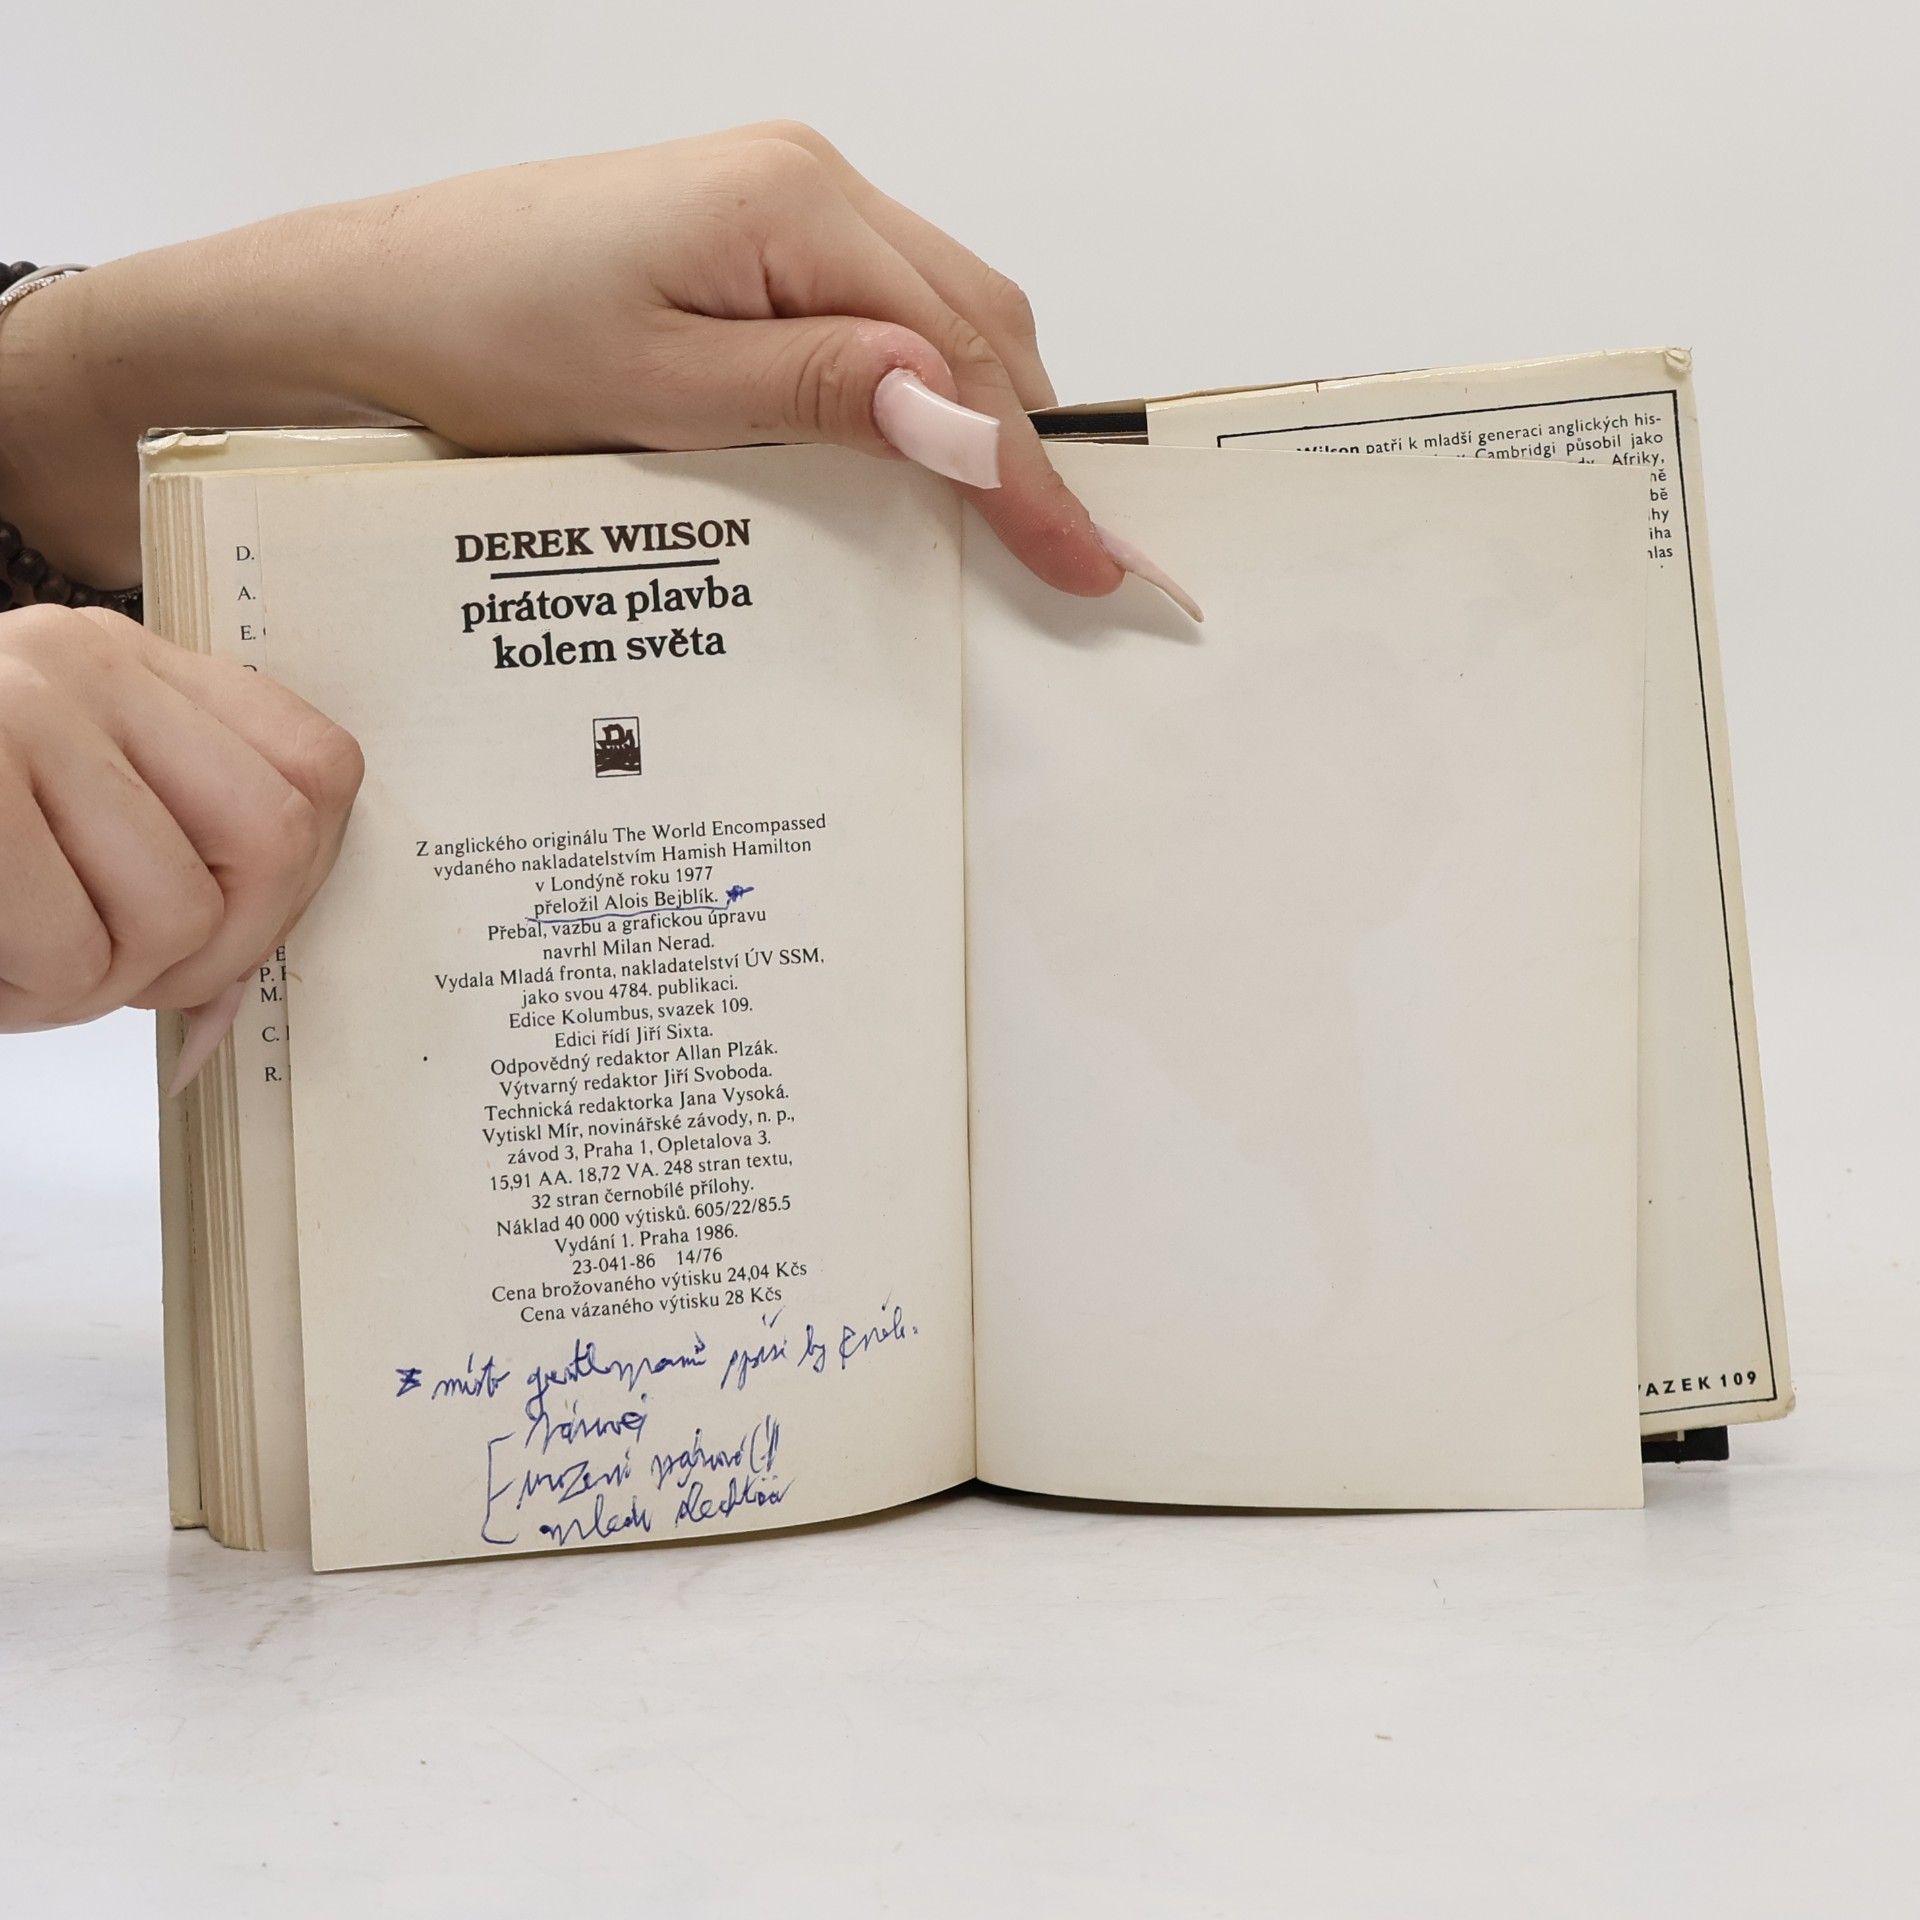 D.
A.
E.
P.
M.
C.
R.
DEREK WILSON
pirátova plavba
kolem světa
Z anglického originálu The World Encompassed
vydaného nakladatelstvím Hamish Hamilton
v Londýně roku 1977
přeložil Alois Bejblík.
Přebal, vazbu a grafickou úpravu
navrhl Milan Nerad.
Vydala Mladá fronta, nakladatelství ÚV SSM,
jako svou 4784. publikaci.
Edice Kolumbus, svazek 109.
Edici řídí Jiří Sixta.
Odpovědný redaktor Allan Plzák.
Výtvarný redaktor Jiří Svoboda.
Technická redaktorka Jana Vysoká.
Vytiskl Mír, novinářské závody, n. p.,
závod 3, Praha 1, Opletalova 3.
15,91 AA. 18,72 VA. 248 stran textu,
32 stran černobílé přílohy.
Náklad 40 000 výtisků. 605/22/85.5
Vydání 1. Praha 1986.
23-041-86 14/76
Cena brožovaného výtisku 24,04 Kčs
Cena vázaného výtisku 28 Kčs
místo gentlemanů spíše by
urození
Wilson patří k mladší generaci anglických his-
Cambridgi působil jako
Afriky,
AZEK 109